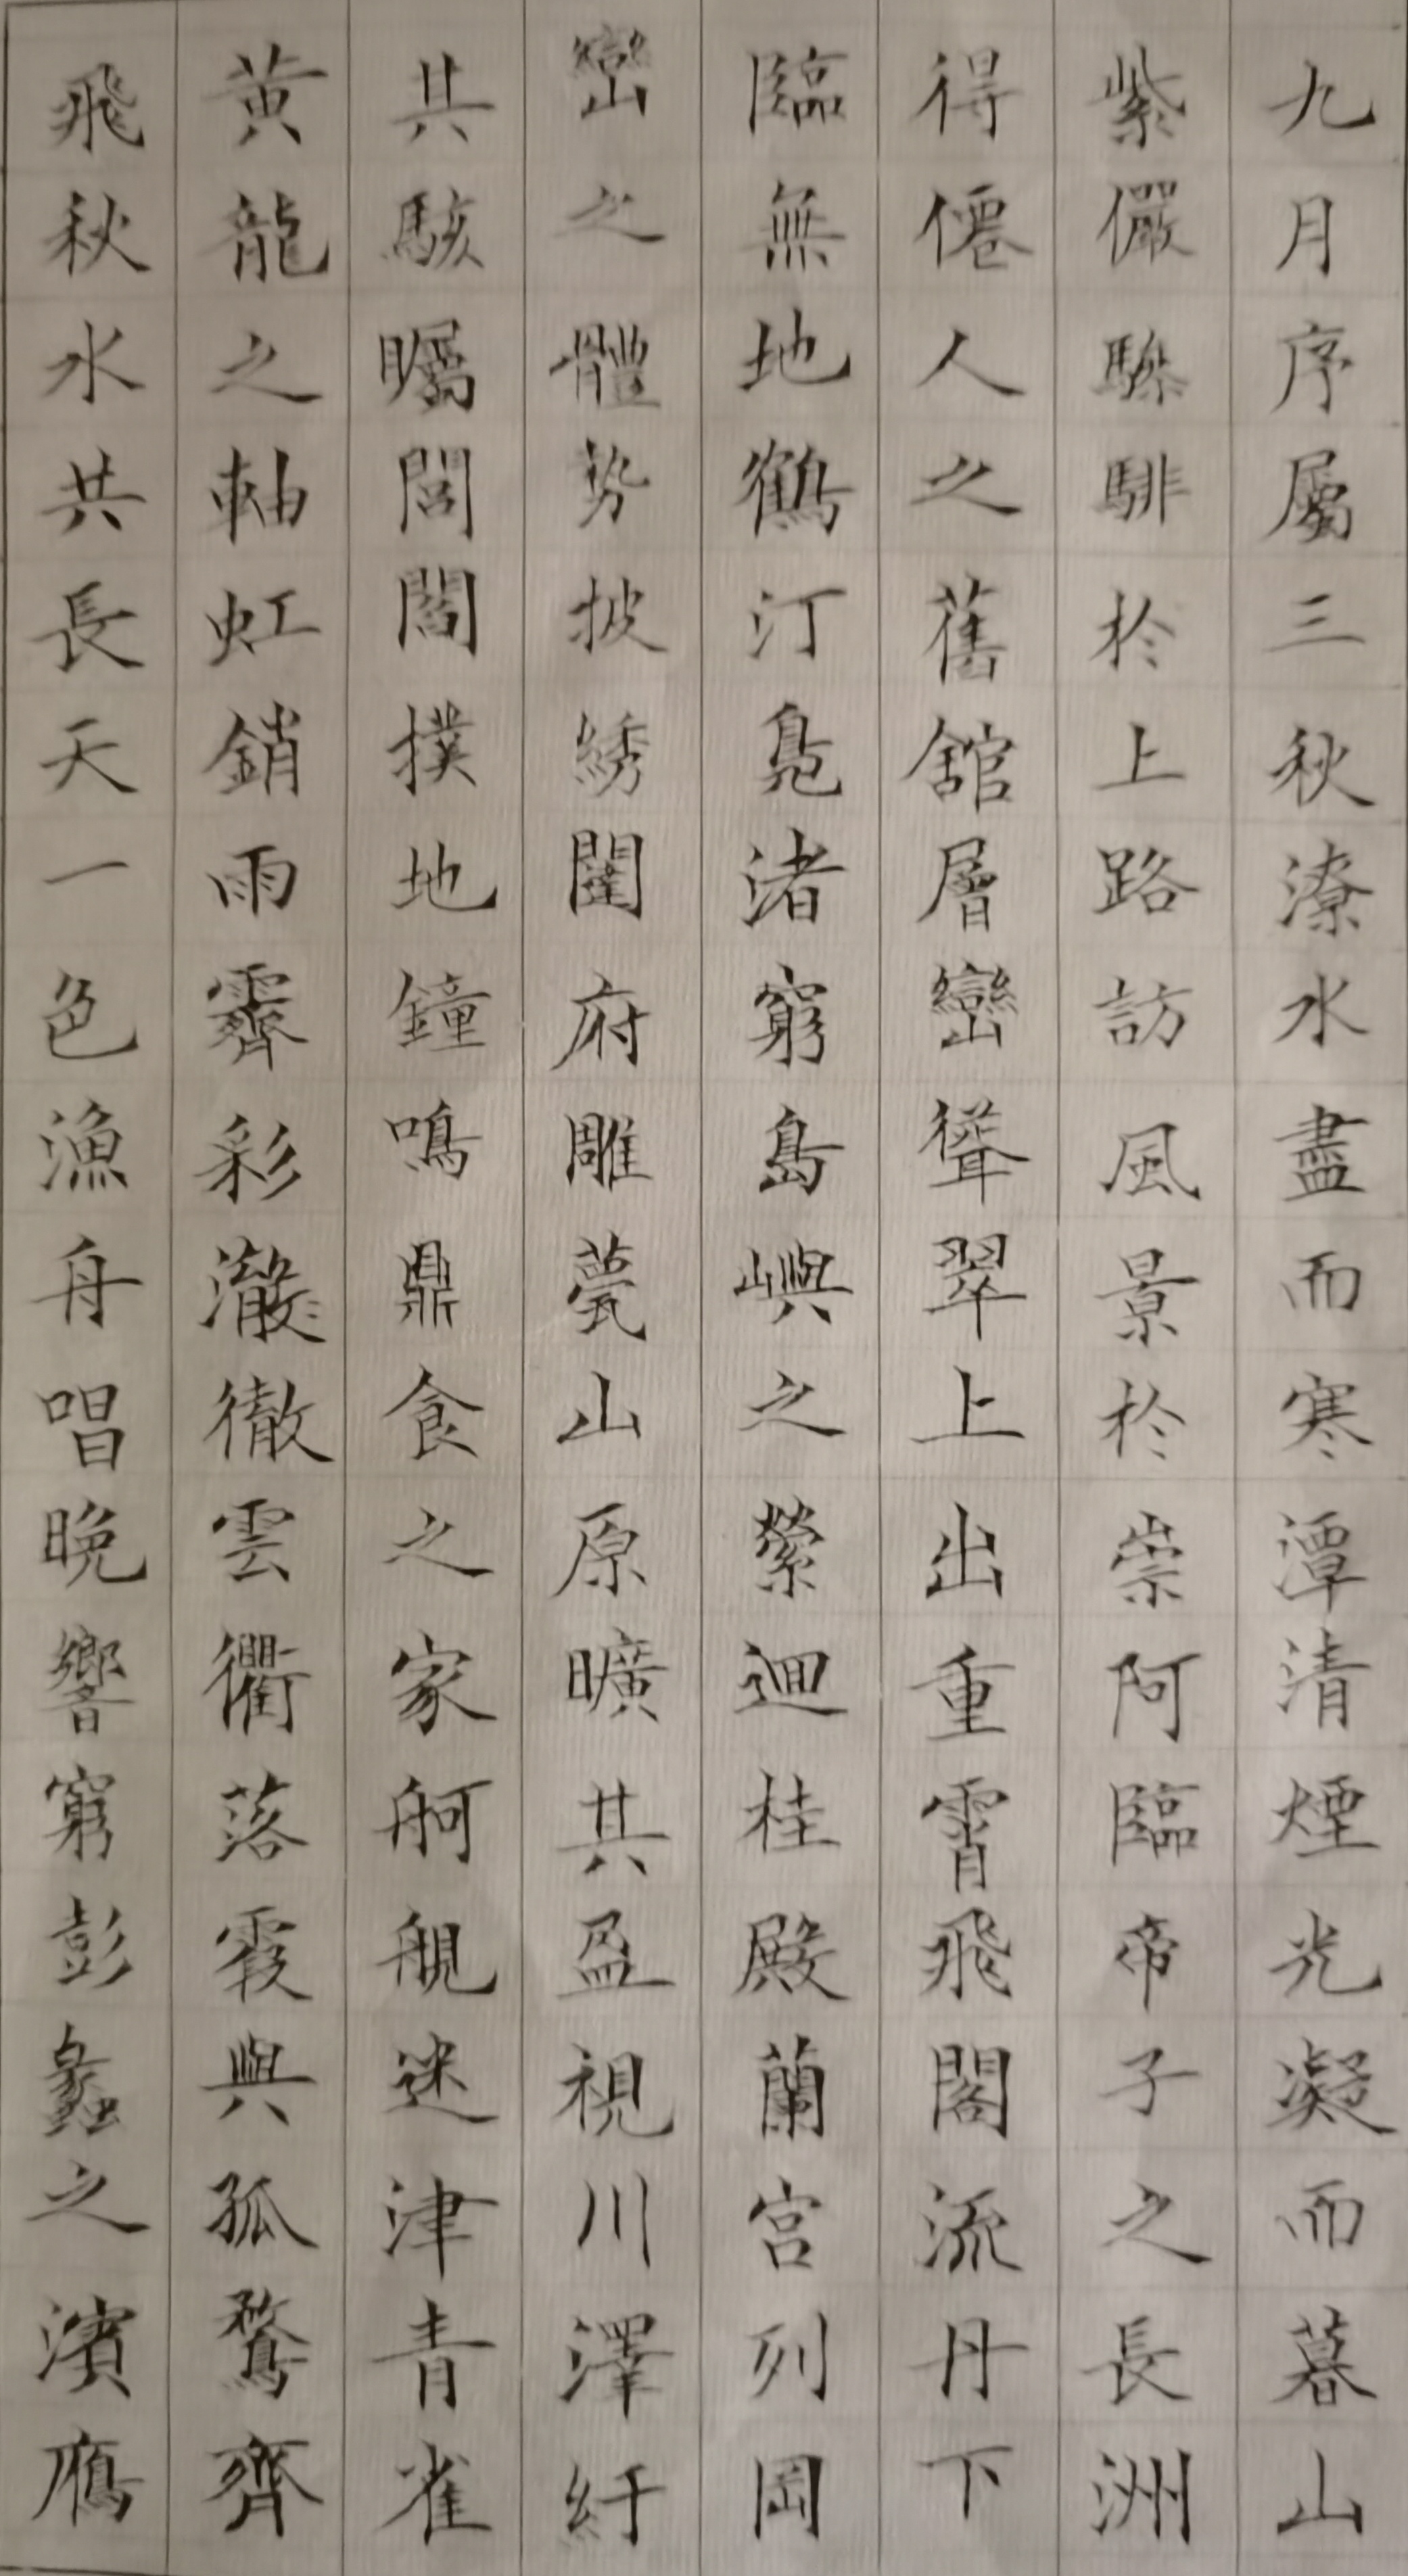 九月序屬三秋潦水盡而寒潭清煙光凝而暮山
紫儼驂騑於上路訪風景於崇阿臨帝子之長洲
得僊人之舊舘層巒聳翠上出重霄飛閣流丹下
臨無地鶴汀鳧渚窮島嶼之縈迴桂殿蘭宮列岡
巒之體勢披綉闥府雕甍山原曠其盈視川澤紆
共駭矚閭閻撲地鐘鳴鼎食之家舸舰迷津青雀
黄龍之軸虹銷雨霽彩澈徹雲衢落霞與孤鶩齊
飛秋水共長天一色漁舟唱晚響窮彭蠡之濱鴈